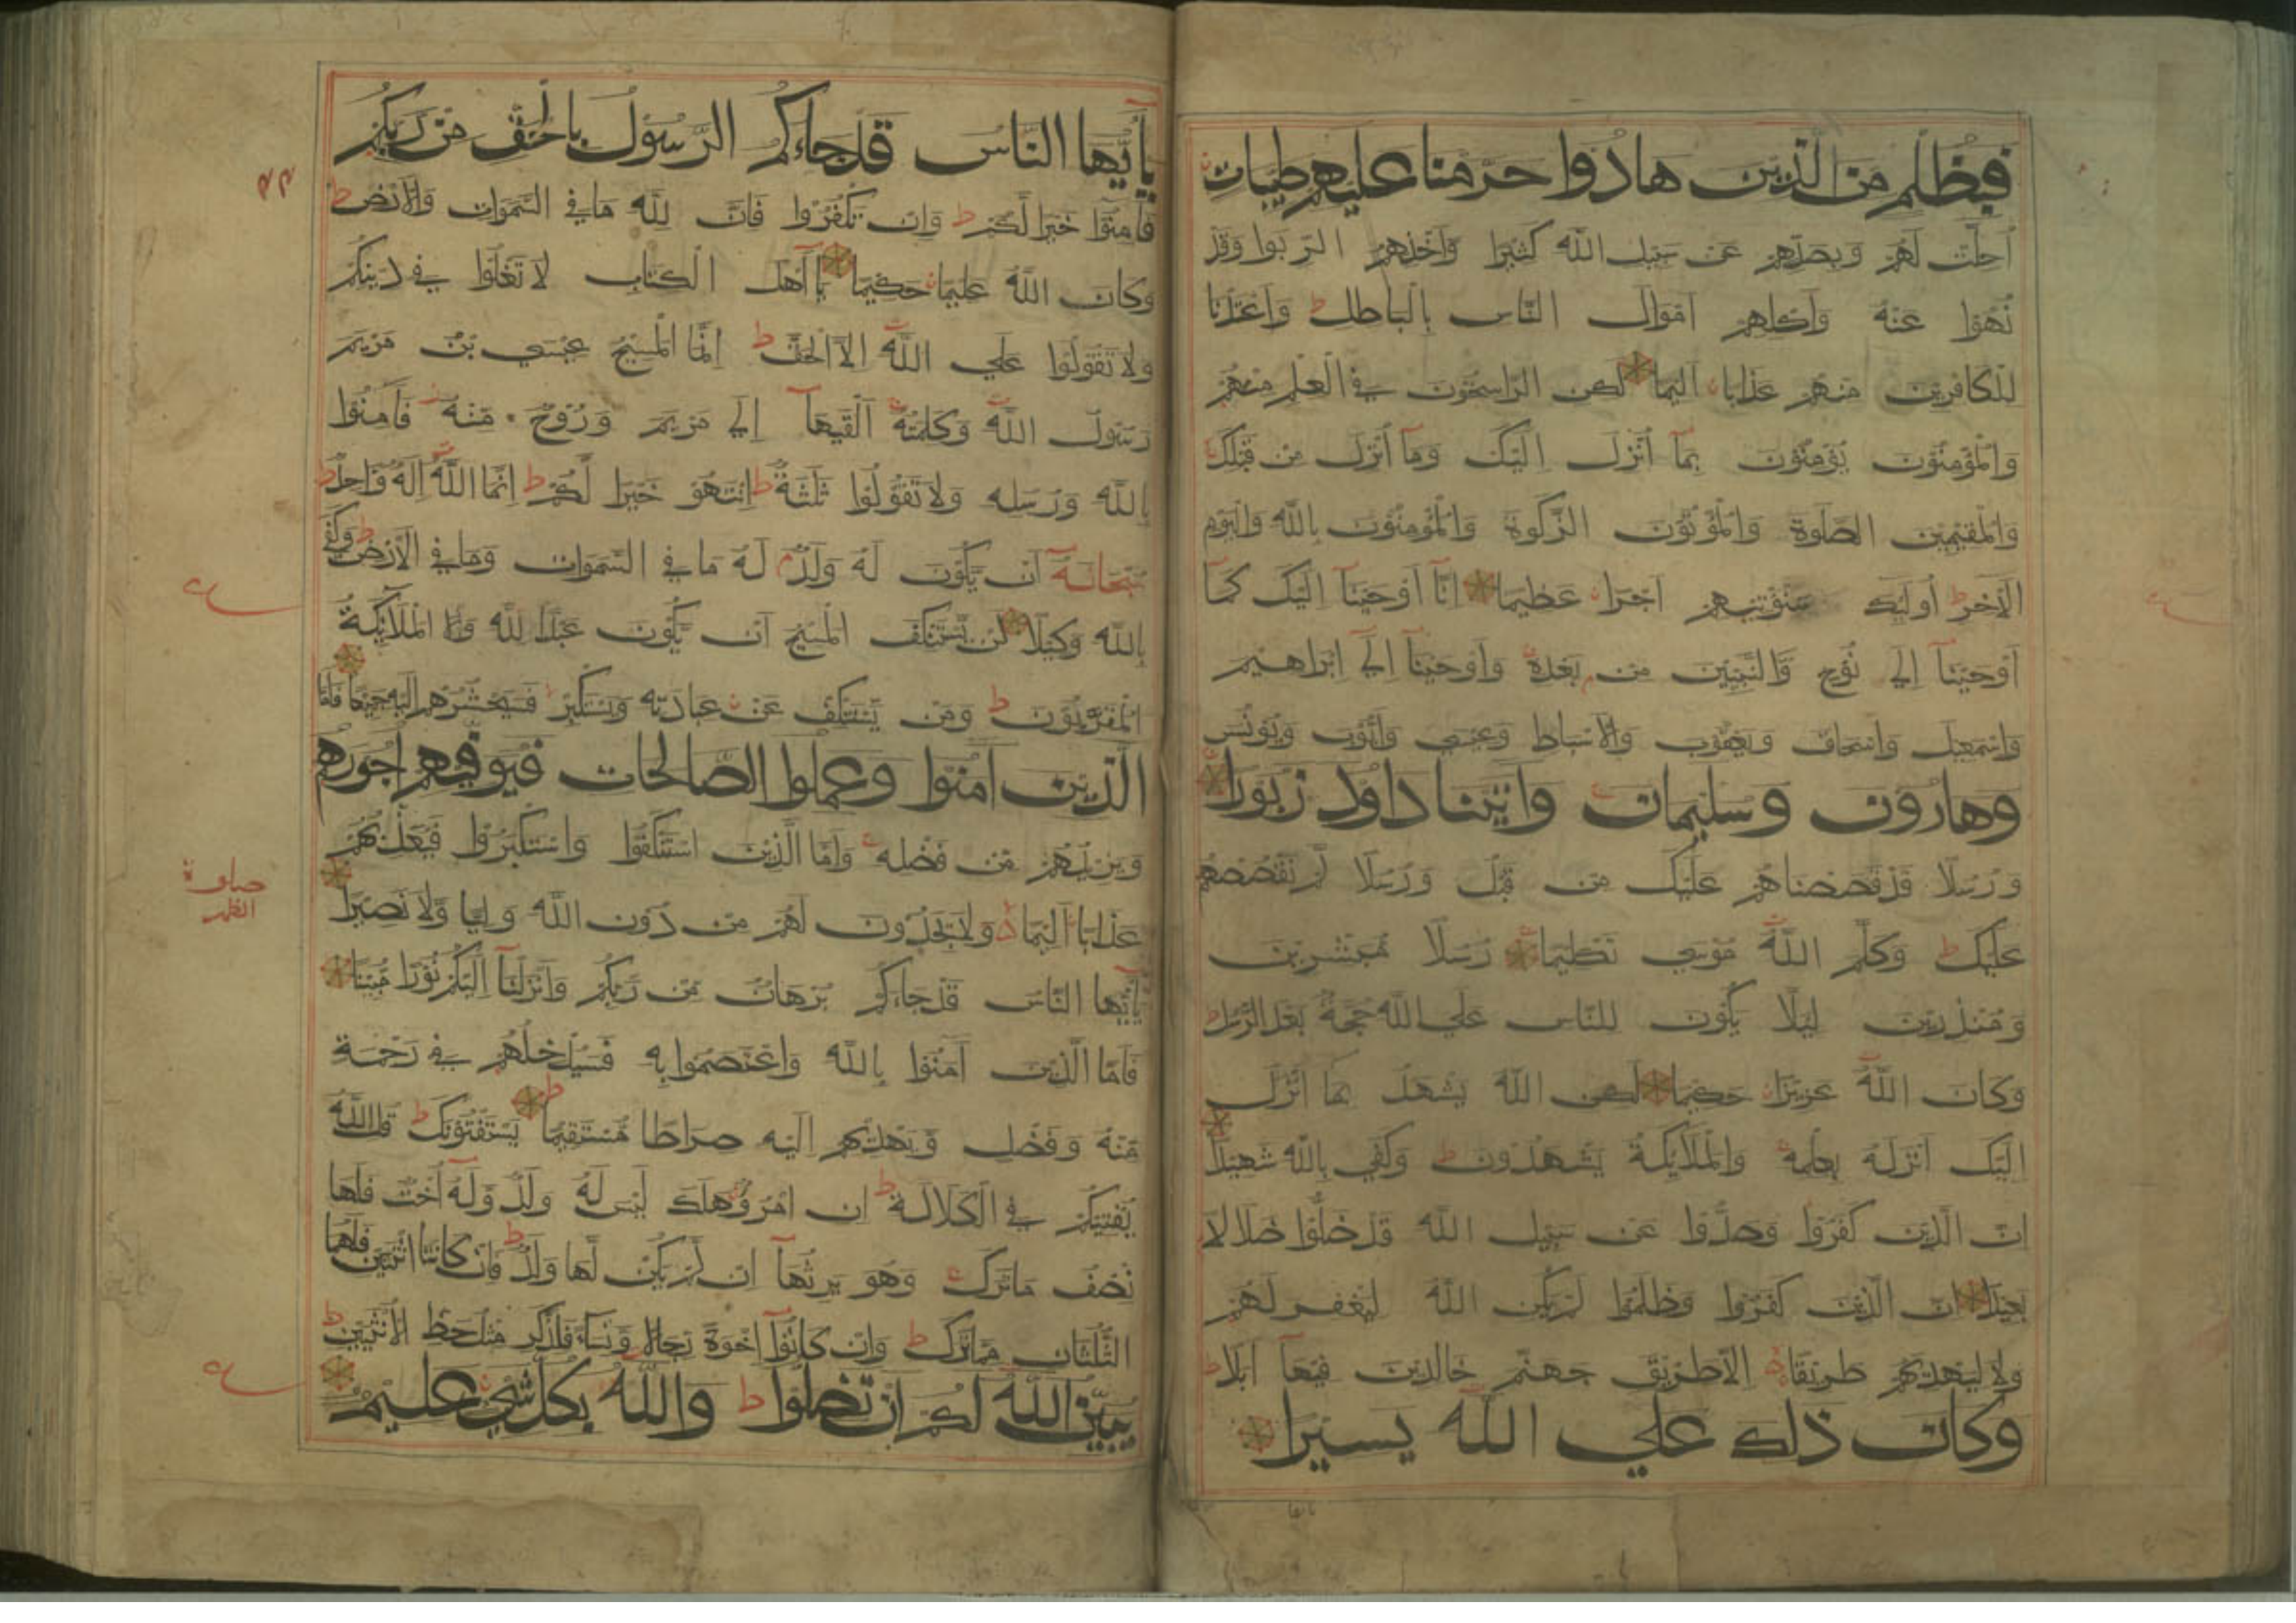 فبظلم من الذين هادوا حرمنا عليهم طيبات
أحلت لهم وبصدهم عن سبيل الله كثيرا وأخذهم الربوا وقد
نهوا عنه وأكلهم أموال الناس بالباطل ط وأعتدنا
للكافرين منهم عذابا أليما لكن الراسخون في العلم منهم
والمؤمنون يؤمنون بما أنزل إليك وما أنزل من قبلك
والمقيمين الصلوة والمؤتون الزكوة والمؤمنون بالله واليوم
الآخر ط أولئك سنؤتيهم أجرا عظيما إنا أوحينا إليك كما
أوحينا إلى نوح والنبيين من بعده وأوحينا إلى ابراهيم
واسمعيل واسحاق ويعقوب والأسباط وعيسى وأيوب ويونس
وهارون وسليمان واتينا داود زبورا
ورسلا قد قصصناهم عليك من قبل ورسلا لم نقصصهم
عليك ط وكلم الله موسى تكليما رسلا مبشرين
ومنذرين ليلا يكون للناس على الله حجة بعد الرسل
وكان الله عزيزا حكيما لكن الله يشهد بما أنزل
إليك أنزله بعلمه والملايكة يشهدون ط وكفى بالله شهيدا
ان الذين كفروا وصدوا عن سبيل الله قد ضلوا ضلالا
بعيدا ان الذين كفروا وظلموا لم يكن الله ليغفر لهم
ولا ليهديهم طريقا الا طريق جهنم خالدين فيها أبدا
وكان ذلك على الله يسيرا
يا أيها الناس قد جاءكم الرسول بالحق من ربكم
فآمنوا خيرا لكم ط وان تكفروا فان لله ما في السموات والأرض ط
وكان الله عليما حكيما يا أهل الكتاب لا تغلوا في دينكم
ولا تقولوا على الله الا الحق ط انما المسيح عيسى بن مريم
رسول الله وكلمته ألقيها إلى مريم وروح منه فآمنوا
بالله ورسله ولا تقولوا ثلثة ط انتهو خيرا لكم ط انما الله اله واحد ط
سبحانه أن يكون له ولد م له ما في السموات وما في الأرض ط وكفى
بالله وكيلا لن يستنكف المسيح أن يكون عبدا لله ولا الملايكة
المقربون ط ومن يستنكف عن عبادته ويستكبر فسيحشرهم إليه جميعا فاما
الذين امنوا وعملوا الصالحات فيوفيهم أجورهم
ويزيدهم من فضله وأما الذين استنكفوا واستكبروا فيعذبهم
عذابا أليما ولا يجدون لهم من دون الله وليا ولا نصيرا
يا أيها الناس قد جاءكم برهان من ربكم وأنزلنا إليكم نورا مبينا
فأما الذين آمنوا بالله واعتصموا به فسيدخلهم في رحمة
منه وفضل ويهديهم إليه صراطا مستقيما ط يستفتونك ط قل الله
يفتيكم في الكلالة ط ان امرؤ هلك ليس له ولد وله أخت فلها
نصف ما ترك وهو يرثها ان لم يكن لها ولد ط فان كانتا اثنتين فلهما
الثلثان مما ترك ط وان كانوا اخوة رجالا ونساء فللذكر مثل حظ الأنثيين ط
يبين الله لكم ان تضلوا ط والله بكل شيء عليم
صلوة
الظهر